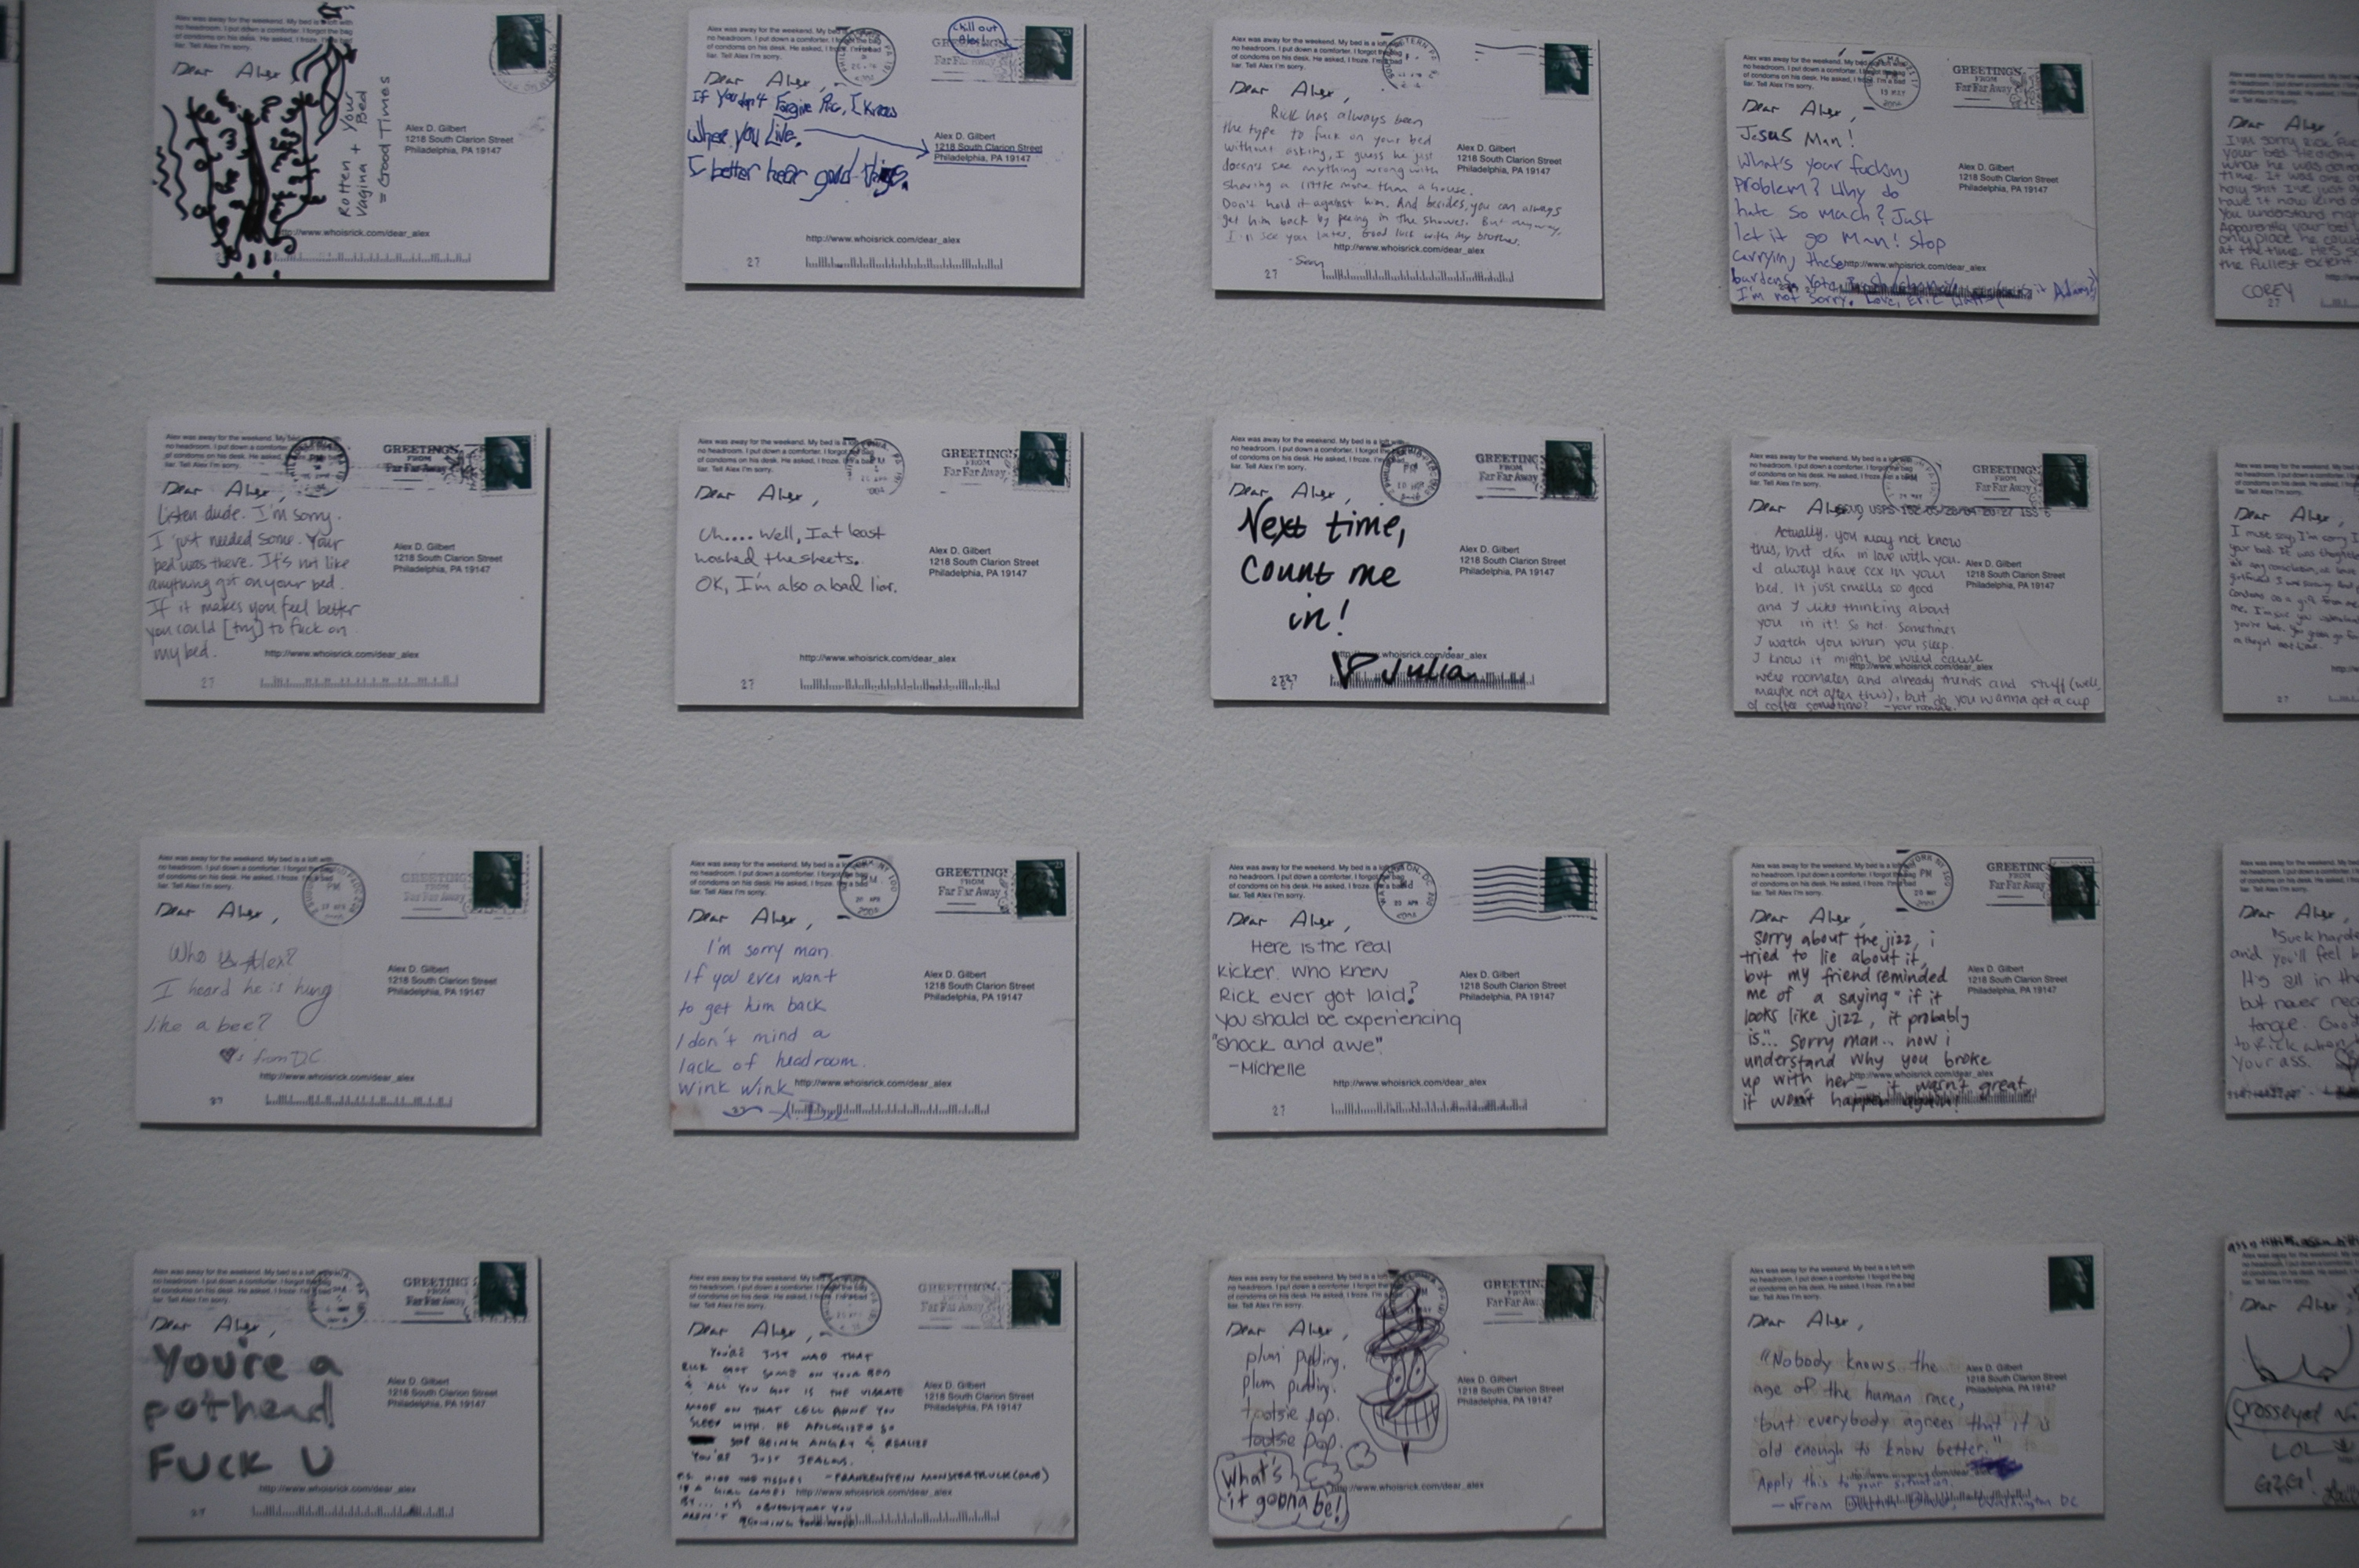 Alex was away for the weekend. My bed is a loft with
no headroom. I put down a comforter. I forgot the bag
of condoms on his desk. He asked, I froze. I'm a bad
liar. Tell Alex I'm sorry.
Dear Alex
Rotten + Your
Vagina + Bed
= Good Times
Alex D. Gilbert
1218 South Clarion Street
Philadelphia, PA 19147
http://www.whoisrick.com/dear_alex
Alex was away for the weekend. My bed is a loft with
no headroom. I put down a comforter. I forgot the bag
of condoms on his desk. He asked, I froze. I'm a bad
liar. Tell Alex I'm sorry.
chill out
Alex!
GREETINGS
Far Far Away
Dear Alex,
If you don't Forgive Ric, I know
Where you Live.
I better hear good things.
Alex D. Gilbert
1218 South Clarion Street
Philadelphia, PA 19147
http://www.whoisrick.com/dear_alex
27
Alex was away for the weekend. My bed is a loft with
no headroom. I put down a comforter. I forgot the bag
of condoms on his desk. He asked, I froze. I'm a bad
liar. Tell Alex I'm sorry.
Dear Alex,
Rick has always been
the type to fuck on your bed
without asking, I guess he just
doesn't see anything wrong with
sharing a little more than a house.
Don't hold it against him. And besides, you can always
get him back by peeing in the shower. But anyway,
I'll see you later. Good luck with my brother.
Alex D. Gilbert
1218 South Clarion Street
Philadelphia, PA 19147
http://www.whoisrick.com/dear_alex
27
Alex was away for the weekend. My bed is a loft with
no headroom. I put down a comforter. I forgot the bag
of condoms on his desk. He asked, I froze. I'm a bad
liar. Tell Alex I'm sorry.
GREETINGS
FROM
Far Far Away
Dear Alex,
Jesus Man!
What's your fucking
problem? Why do
hate so much? Just
let it go Man! Stop
carrying these
burdens
I'm not sorry. Love, Eric
Alex D. Gilbert
1218 South Clarion Street
Philadelphia, PA 19147
http://www.whoisrick.com/dear_alex
Dear Alex,
I'm sorry Rick
your bed. He didn't
what he was
time. It was one
holy shit I've just
have it now kind
You understand
Apparently your bed
only place he could
at the time. He's
the fullest extent
COREY
27
Alex was away for the weekend. My bed is a loft with
no headroom. I put down a comforter. I forgot the bag
of condoms on his desk. He asked, I froze. I'm a bad
liar. Tell Alex I'm sorry.
GREETINGS
FROM
Far Far Away
Dear Alex,
Listen dude. I'm sorry.
I just needed some. Your
bed was there. It's not like
anything got on your bed.
If it makes you feel better
you could [try] to fuck on
my bed.
Alex D. Gilbert
1218 South Clarion Street
Philadelphia, PA 19147
http://www.whoisrick.com/dear_alex
27
Alex was away for the weekend. My bed is a loft with
no headroom. I put down a comforter. I forgot the bag
of condoms on his desk. He asked, I froze. I'm a bad
liar. Tell Alex I'm sorry.
GREETINGS
FROM
Far Far Away
Dear Alex,
Uh.... Well, I at least
washed the sheets.
OK, I'm also a bad liar.
Alex D. Gilbert
1218 South Clarion Street
Philadelphia, PA 19147
http://www.whoisrick.com/dear_alex
27
Alex was away for the weekend. My bed is a loft with
no headroom. I put down a comforter. I forgot the bag
of condoms on his desk. He asked, I froze. I'm a bad
liar. Tell Alex I'm sorry.
GREETINGS
FROM
Far Far Away
Dear Alex,
Next time,
count me
in!
♥ Julia
Alex D. Gilbert
1218 South Clarion Street
Philadelphia, PA 19147
http://www.whoisrick.com/dear_alex
27
Alex was away for the weekend. My bed is a loft with
no headroom. I put down a comforter. I forgot the bag
of condoms on his desk. He asked, I froze. I'm a bad
liar. Tell Alex I'm sorry.
GREETINGS
FROM
Far Far Away
Dear Alex
Actually, you may not know
this, but I'm in love with you.
I always have sex in your
bed. It just smells so good
and I like thinking about
you in it! So hot. Sometimes
I watch you when you sleep.
I know it might be weird cause
we're roomates and already friends and stuff (well,
maybe not after this), but do you wanna get a cup
of coffee sometime? -your roomate
Alex D. Gilbert
1218 South Clarion Street
Philadelphia, PA 19147
http://www.whoisrick.com/dear_alex
Dear Alex,
I must say I'm sorry I
your bed. It was
27
Alex was away for the weekend. My bed is a loft with
no headroom. I put down a comforter. I forgot the bag
of condoms on his desk. He asked, I froze. I'm a bad
liar. Tell Alex I'm sorry.
GREETINGS
FROM
Far Far Away
Dear Alex,
Who is Alex?
I heard he is hung
like a bee?
♥'s from DC
Alex D. Gilbert
1218 South Clarion Street
Philadelphia, PA 19147
http://www.whoisrick.com/dear_alex
27
Alex was away for the weekend. My bed is a loft with
no headroom. I put down a comforter. I forgot the bag
of condoms on his desk. He asked, I froze. I'm a bad
liar. Tell Alex I'm sorry.
GREETINGS
FROM
Far Far Away
Dear Alex,
I'm sorry man
If you ever want
to get him back
I don't mind a
lack of headroom.
Wink wink
Alex D. Gilbert
1218 South Clarion Street
Philadelphia, PA 19147
http://www.whoisrick.com/dear_alex
Alex was away for the weekend. My bed is a loft with
no headroom. I put down a comforter. I forgot the bag
of condoms on his desk. He asked, I froze. I'm a bad
liar. Tell Alex I'm sorry.
Dear Alex,
Here is the real
kicker. Who knew
Rick ever got laid?
You should be experiencing
"shock and awe".
-Michelle
Alex D. Gilbert
1218 South Clarion Street
Philadelphia, PA 19147
http://www.whoisrick.com/dear_alex
27
Alex was away for the weekend. My bed is a loft with
no headroom. I put down a comforter. I forgot the bag
of condoms on his desk. He asked, I froze. I'm a bad
liar. Tell Alex I'm sorry.
GREETING
FROM
Far Far Away
Dear Alex,
sorry about the jizz, i
tried to lie about it,
but my friend reminded
me of a saying "if it
looks like jizz, it probably
is"... sorry man.. now i
understand why you broke
up with her- it wasn't great,
it won't happen again!
Alex D. Gilbert
1218 South Clarion Street
Philadelphia, PA 19147
http://www.whoisrick.com/dear_alex
Dear Alex,
"Suck harde
and you'll feel
It's all in the
but never
tongue. Goo
to Rick when
your ass.
Alex was away for the weekend. My bed is a loft with
no headroom. I put down a comforter. I forgot the bag
of condoms on his desk. He asked, I froze. I'm a bad
liar. Tell Alex I'm sorry.
GREETING
FROM
Far Far Away
Dear Alex,
You're a
pothead
FUCK U
Alex D. Gilbert
1218 South Clarion Street
Philadelphia, PA 19147
http://www.whoisrick.com/dear_alex
27
Alex was away for the weekend. My bed is a loft with
no headroom. I put down a comforter. I forgot the bag
of condoms on his desk. He asked, I froze. I'm a bad
liar. Tell Alex I'm sorry.
GREETINGS
FROM
Far Far Away
Dear Alex,
YOU'RE JUST MAD THAT
RICK GOT SOME ON YOUR BED
& ALL YOU GOT IS THE VIBRATE
MODE ON THAT CELL PHONE YOU
SLEEP WITH. HE APOLOGIZED SO
STOP BEING ANGRY & REALIZE
YOU'RE JUST JEALOUS.
P.S. HIDE THE TISSUES -FRANKENSTEIN MONSTERTRUCK (DAVE)
IF A GIRL COMES
BY... IT'S OBVIOUS THAT YOU
AREN'T BLOWING YOUR NOSE
Alex D. Gilbert
1218 South Clarion Street
Philadelphia, PA 19147
http://www.whoisrick.com/dear_alex
Alex was away for the weekend. My bed is a loft with
no headroom. I put down a comforter. I forgot the bag
of condoms on his desk. He asked, I froze. I'm a bad
liar. Tell Alex I'm sorry.
GREETIN
FROM
Far Far Aw
Dear Alex,
plum pudding.
plum pudding.
tootsie pop.
tootsie pop.
What's
it gonna be!
Alex D. Gilbert
1218 South Clarion Street
Philadelphia, PA 19147
http://www.whoisrick.com/dear_alex
Alex was away for the weekend. My bed is a loft with
no headroom. I put down a comforter. I forgot the bag
of condoms on his desk. He asked, I froze. I'm a bad
liar. Tell Alex I'm sorry.
Dear Alex,
"Nobody knows the
age of the human race,
but everybody agrees that it is
old enough to know better."
Apply this to your situation.
-From Washington DC
Alex D. Gilbert
1218 South Clarion Street
Philadelphia, PA 19147
Dear Alex,
Crosseyed
LOL
G2G!